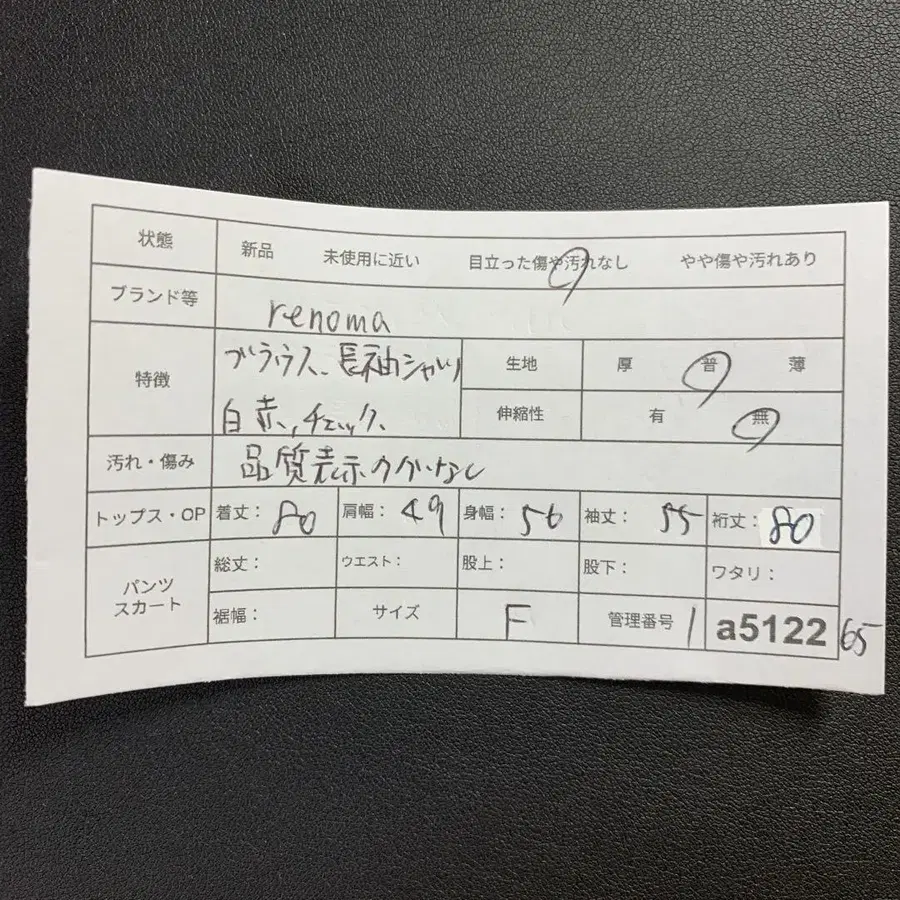 状態 新品 未使用に近い 目立った傷や汚れなし やや傷や汚れあり
ブランド等 renoma
特徴 ブラウス、長袖シャツ 生地 厚 普 薄
白赤、チェック、 伸縮性 有 無
汚れ・傷み 品質表示タグなし
トップス・OP 着丈: 80 肩幅: 49 身幅: 56 袖丈: 55 裄丈: 80
パンツ スカート 総丈: ウエスト: 股上: 股下: ワタリ:
裾幅: サイズ F 管理番号 1 a5122 65